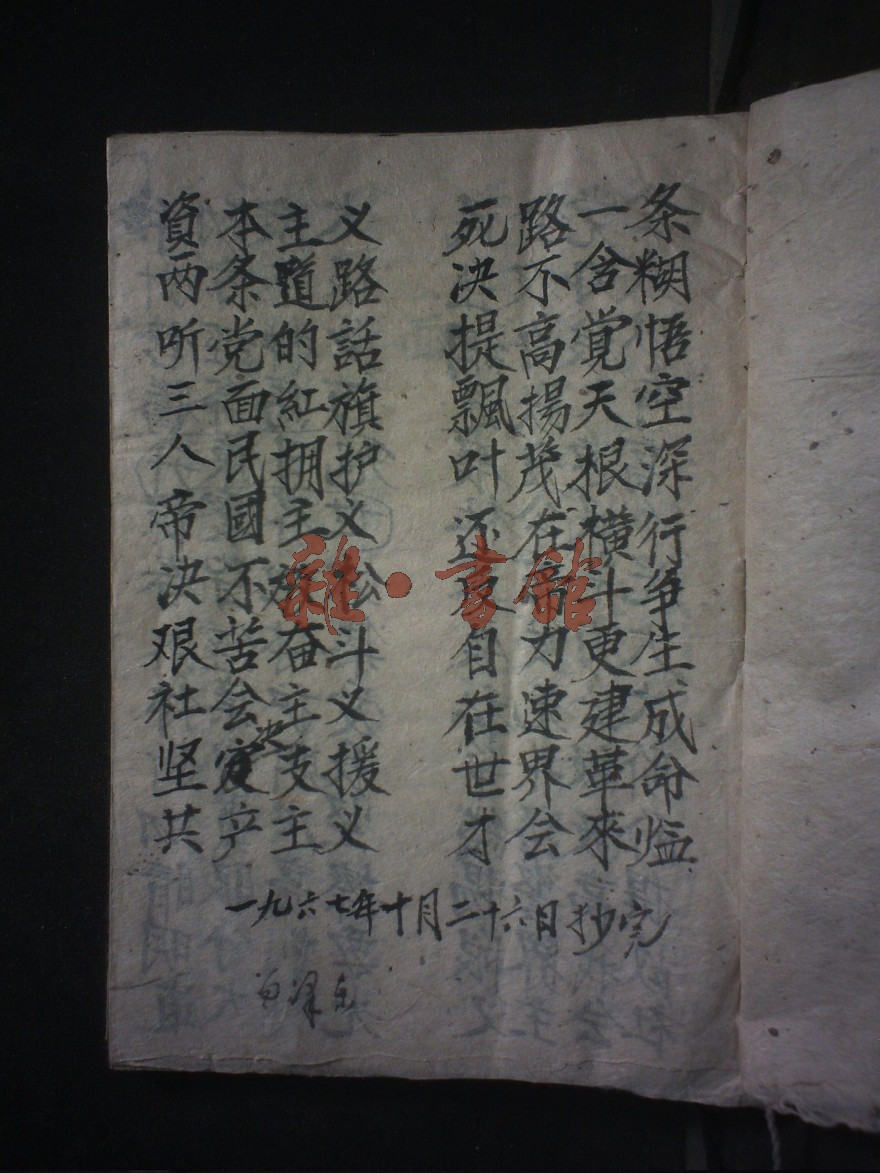 資本主义 死路一条
两条道路 决不含糊
听党的話 提高覚悟
三面紅旗 飄揚天空
人民拥护 叶茂根深
帝國主义 还在横行
决不松 帝斗争
艰苦奋斗 自力更生
社会主义 在速建成
坚决支援 世界革命
共产主义 才会來
一九六七年十月二十六日抄完
雜·書館